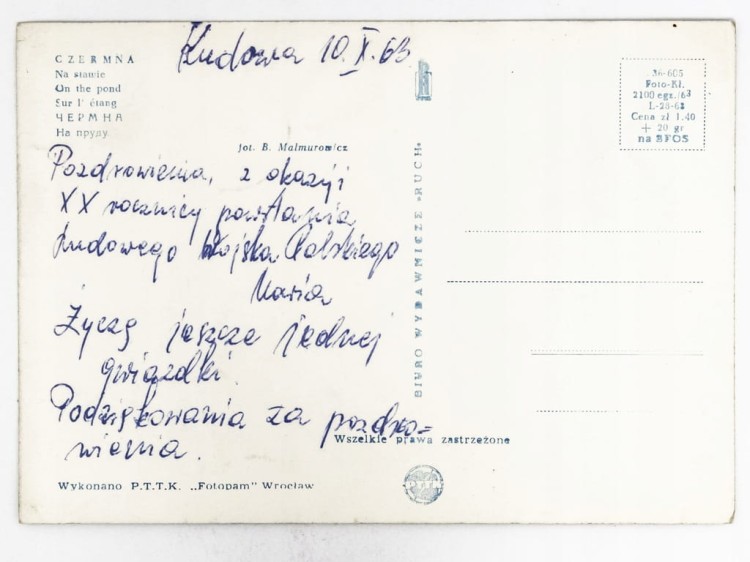 Kudowa 10.X.63
CZERMNA
Na stawie
On the pond
Sur l' étang
ЧЕРМНА
На пруду
fot. B. Malmurowicz
Pozdrowienia, z okazyi
XX rocznicy powstania
Ludowego Wojska Polskiego
Maria
Życzę jeszcze jednej
gwiazdki.
Podziękowania za pozdro=
wienia.
Wykonano P.T.T.K. „Fotopam" Wrocław
BIURO WYDAWNICZE «RUCH»
Wszelkie prawa zastrzeżone
PTTK
36-605
Foto-Kł.
2100 egz./63
L-28-63
Cena zł 1.40
+ 20 gr
na SFOS